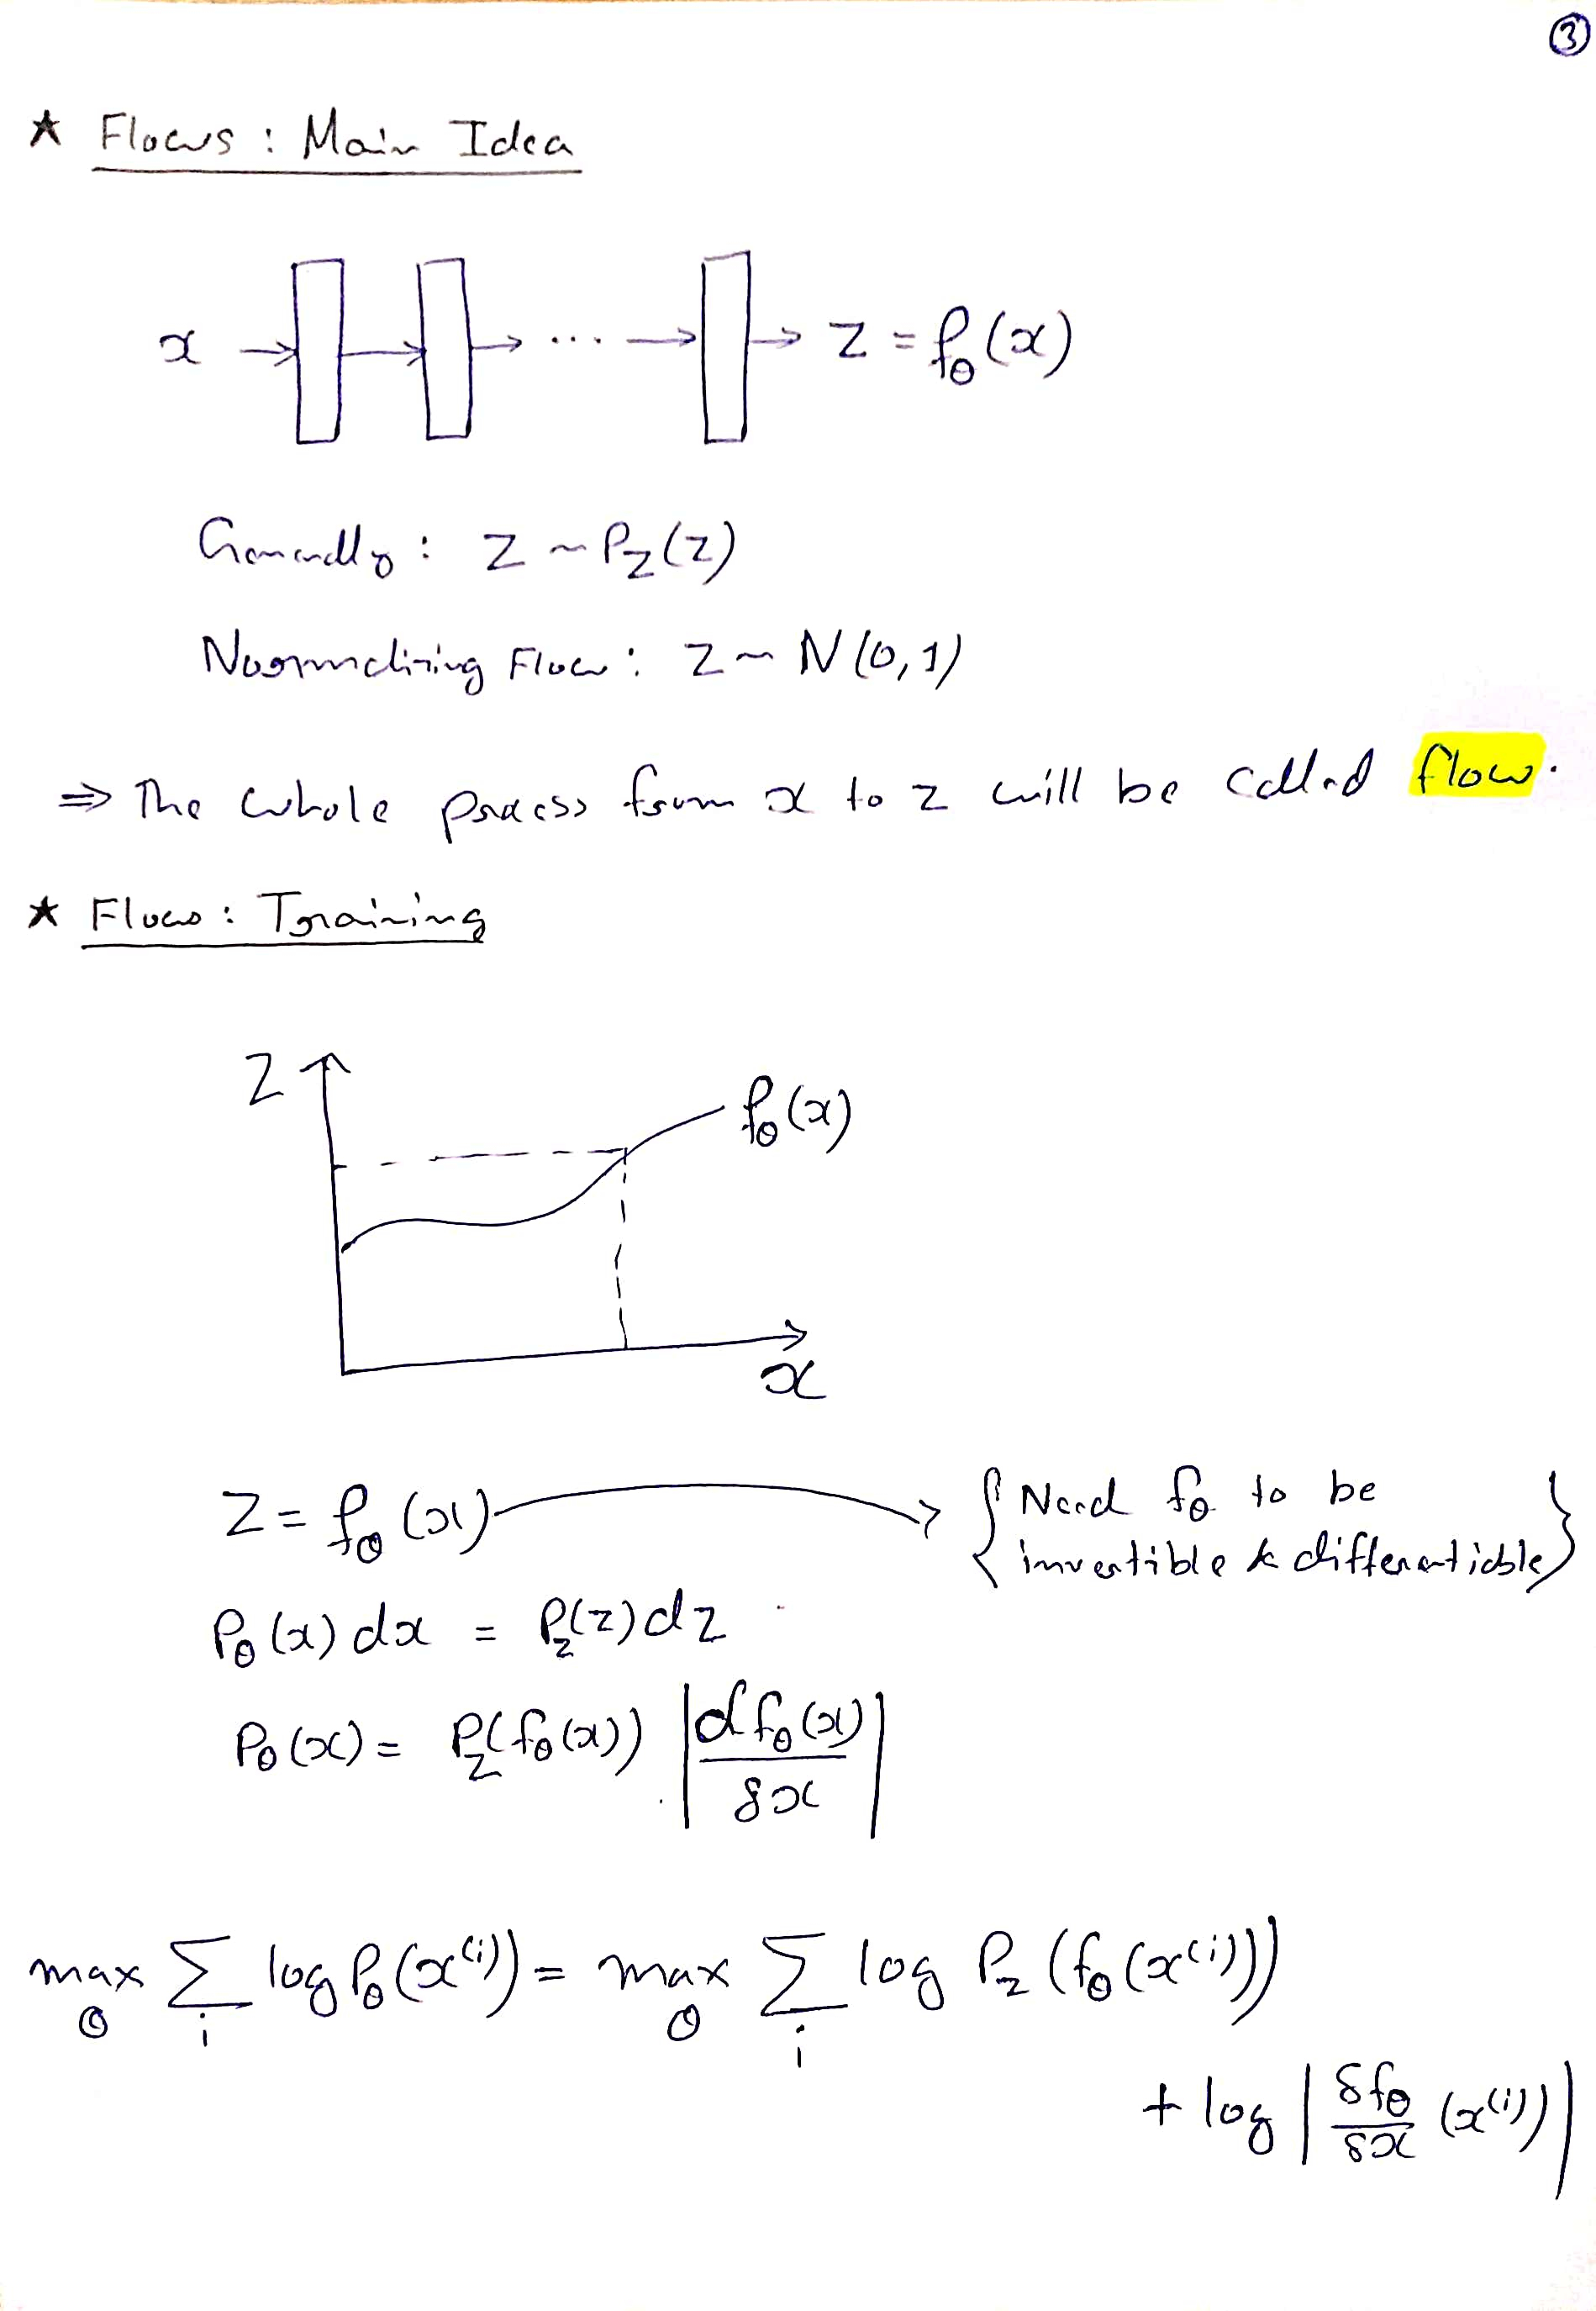 ③
★ Flows : Main Idea
x → → → ... → → z = fθ(x)
Generally : z ~ Pz(z)
Normalizing Flow : z ~ N(0,1)
⇒ The whole process from x to z will be called flow.
★ Flows : Training
z
fθ(x)
x
z = fθ(x) → { Need fθ to be
invertible & differentiable }
Pθ(x) dx = Pz(z) dz
Pθ(x) = Pz(fθ(x)) | d fθ(x) / δx |
max θ Σ i log Pθ(x⁽ⁱ⁾) = max θ Σ i log Pz (fθ(x⁽ⁱ⁾))
+ log | δfθ / δx (x⁽ⁱ⁾) |